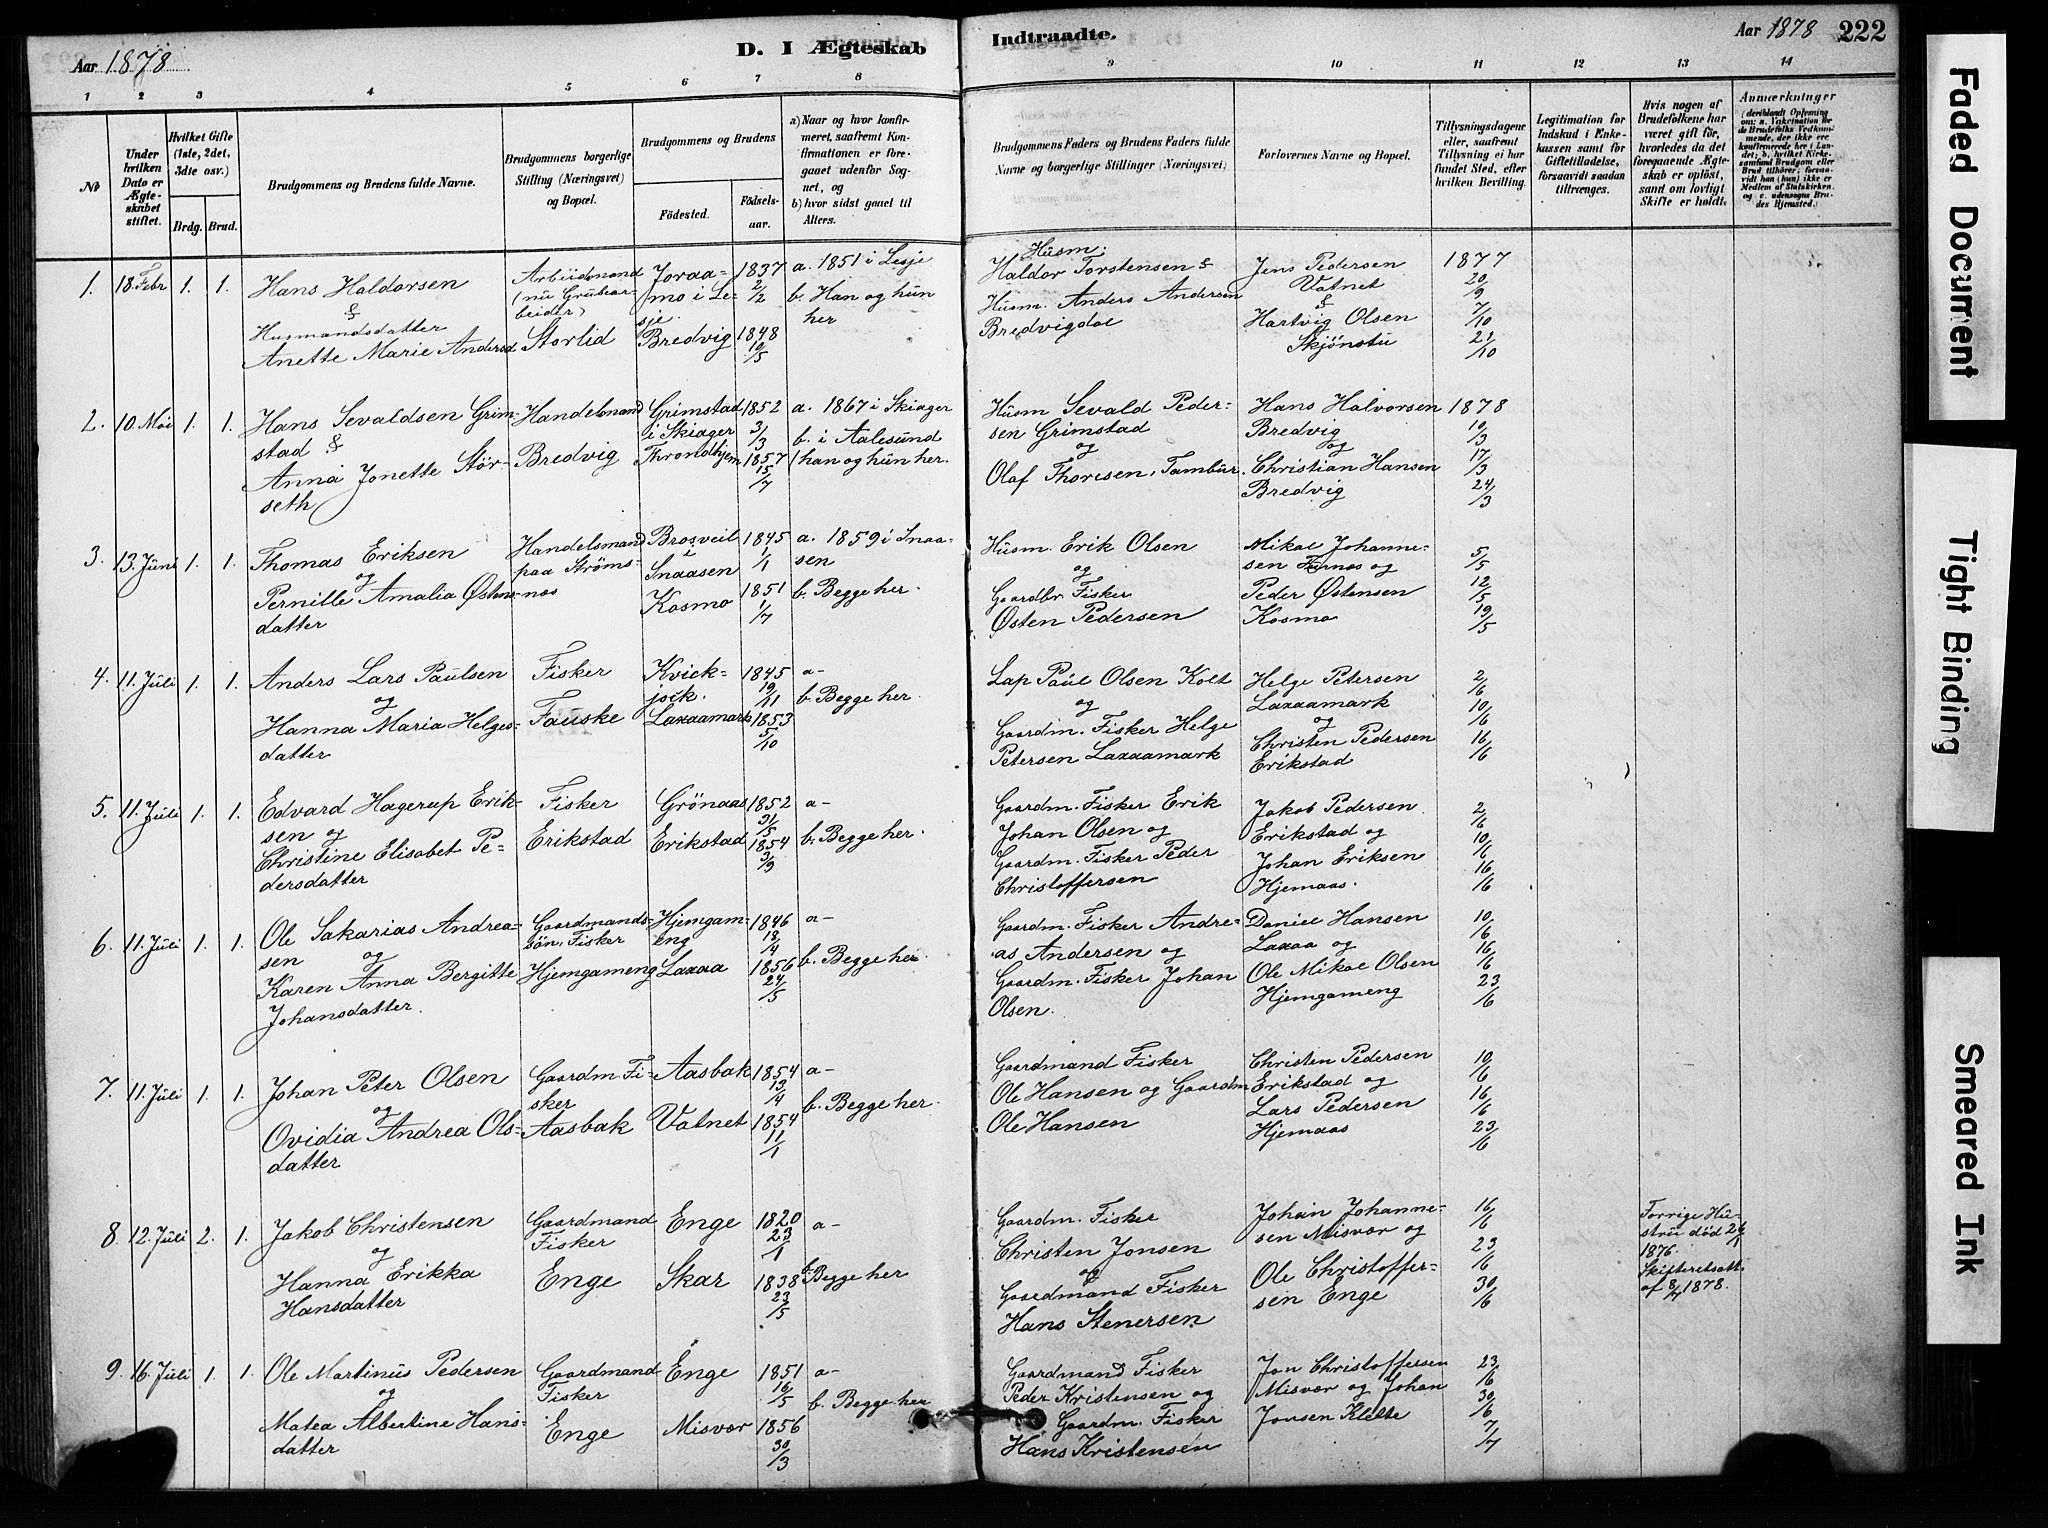 Aar 1878.
D. I Ægteskab
Indtraadte.
Aar 1878
222
1 2 3 4 5 6 7 8
9 10 11 12 13 14
No
Under hvilken Dato er Ægteskabet stiftet.
Hvilket Gifte (1ste, 2det, 3dte osv.)
Brdg. Brud.
Brudgommens og Brudens fulde Navne.
Brudgommens borgerlige Stilling (Næringsvei) og Bopæl.
Brudgommens og Brudens
Fødested.
Fødselsaar.
a) Naar og hvor konfirmeret, saafremt Konfirmationen er foregaaet udenfor Sognet, og
b) hvor sidst gaaet til Alters.
Brudgommens Faders og Brudens Faders fulde Navne og borgerlige Stillinger (Næringsvei)
Forlovernes Navne og Bopæl.
Tillysningsdagene eller, saafremt Tillysning ei har fundet Sted, efter hvilken Bevilling.
Legitimation for Indskud i Enkekassen samt for Giftetilladelse, forsaavidt saadan tiltrænges.
Hvis nogen af Brudefolkene har været gift før, hvorledes da det foregaaende Ægteskab er opløst, samt om lovligt Skifte er holdt.
Anmærkninger
1. 18. Febr 1. 1.
Hans Haldorsen
&
Husmandsdatter
Anette Marie Andersd
Arbeidsmand
(nu Grubearbeider)
Storlid
Joraamo i Lesje.
Bredvig
1837 2/2
1848 10/5
a. 1851 i Lesje
b. Han og hun
her
Husm.
Haldor Torstensen &
Husm. Anders Andersen
Bredvigdal
Jens Pedersen
Vatnet
&
Hartvig Olsen
Skjönstu
1877
20/9
7/10
21/10
2. 10. Mai 1. 1.
Hans Sevaldsen Grimstad &
Anna Jonette Störseth
Handelsmand
Bredvig
Grimstad
i Skiager
Throndhjem
1852 3/3
1857 15/7
a. 1867 i Skiager
b. i Aalesund
(han og hun her.
Husm Sevald Pedersen Grimstad
og
Olaf Thoresen, Tambur.
Hans Halvorsen
Bredvig
og
Christian Hansen
Bredvig
1878
10/3
17/3
24/3
3. 13. Juni 1. 1.
Thomas Eriksen
og
Pernille Amalia Østensdatter
Handelsmand
paa Strömsnos
Brosveil
i
Snaasen
Kosmo
1845 1/1
1851 1/7
a. 1859 i Snaasen
b. Begge her.
Husm. Erik Olsen
og
Gaardbr Fisker
Østen Pedersen
Mikal Johannesen Furnes og
Peder Østensen
Kosmo
5/5
12/5
19/5
4. 11. Juli 1. 1.
Anders Lars Paulsen
og
Hanna Maria Helgesdatter
Fisker
Fauske
Kvickjock.
Laxaamark
1845 19/11
1853 5/10
a-
b. Begge her
Lap Paul Olsen Kolt
og
Gaardm. Fisker Helge
Petersen Laxaamark
Helge Petersen
Laxaamark
og
Christen Pedersen
Erikstad
2/6
10/6
16/6
5. 11. Juli 1. 1.
Edvard Hagerup Eriksen og
Christine Elisabet Pedersdatter
Fisker
Erikstad
Grönaas
Erikstad
1852 31/5
1854 3/9
a-
b. Begge her.
Gaardm. Fisker Erik
Johan Olsen og
Gaardm. Fisker Peder
Christoffersen
Jakob Pedersen
Erikstad og
Johan Eriksen
Hjemaas.
2/6
10/6
16/6
6. 11. Juli 1. 1.
Ole Sakarias Andreasen og
Karen Anna Bergitte
Johansdatter.
Gaardmandssön, Fisker
Hjemgameng
Hjemgameng
Laxaa
1846 18/4
1856 24/5
a-
b. Begge her.
Gaardm. Fisker Andreas Andersen og
Gaardm. Fisker Johan
Olsen.
Daniel Hansen
Laxaa og
Ole Mikal Olsen
Hjemgameng
10/6
16/6
23/6
7. 11. Juli 1. 1.
Johan Peter Olsen
og
Ovidia Andrea Olsdatter
Gaardm Fisker
Aasbak
Aasbak
Vatnet
1854 13/4
1854 11/1
a-
b. Begge her.
Gaardmand Fisker
Ole Hansen og Gaardm
Ole Hansen
Christen Pedersen
Erikstad og
Lars Pedersen
Hjemaas
10/6
16/6
23/6
8. 12. Juli 2. 1.
Jakob Christensen
og
Hanna Erikka
Hansdatter
Gaardmand
Fisker
Enge
Enge
Skar
1820 23/1
1838 23/5
a-
b. Begge her
Gaardm. Fisker
Christen Jonsen
og
Gaardmand Fisker
Hans Stenersen
Johan Johannesen Misvær og
Ole Christoffersen Enge
16/6
23/6
30/6
Forrige Hustru död
1876.
Skifteretsatt.
af 8/7 1878.
9. 16. Juli 1. 1.
Ole Martinus Pedersen
og
Matea Albertine Hansdatter
Gaardmand
Fisker
Enge
Enge
Misvær
1851 16/5
1856 30/3
a-
b. Begge her
Gaardmand Fisker
Peder Kristensen og
Gaardm. Fisker
Hans Kristensen
Jon Christoffersen
Misvær og Johan
Jonsen Klette
23/6
30/6
7/7
Faded Document
Tight Binding
Smeared Ink